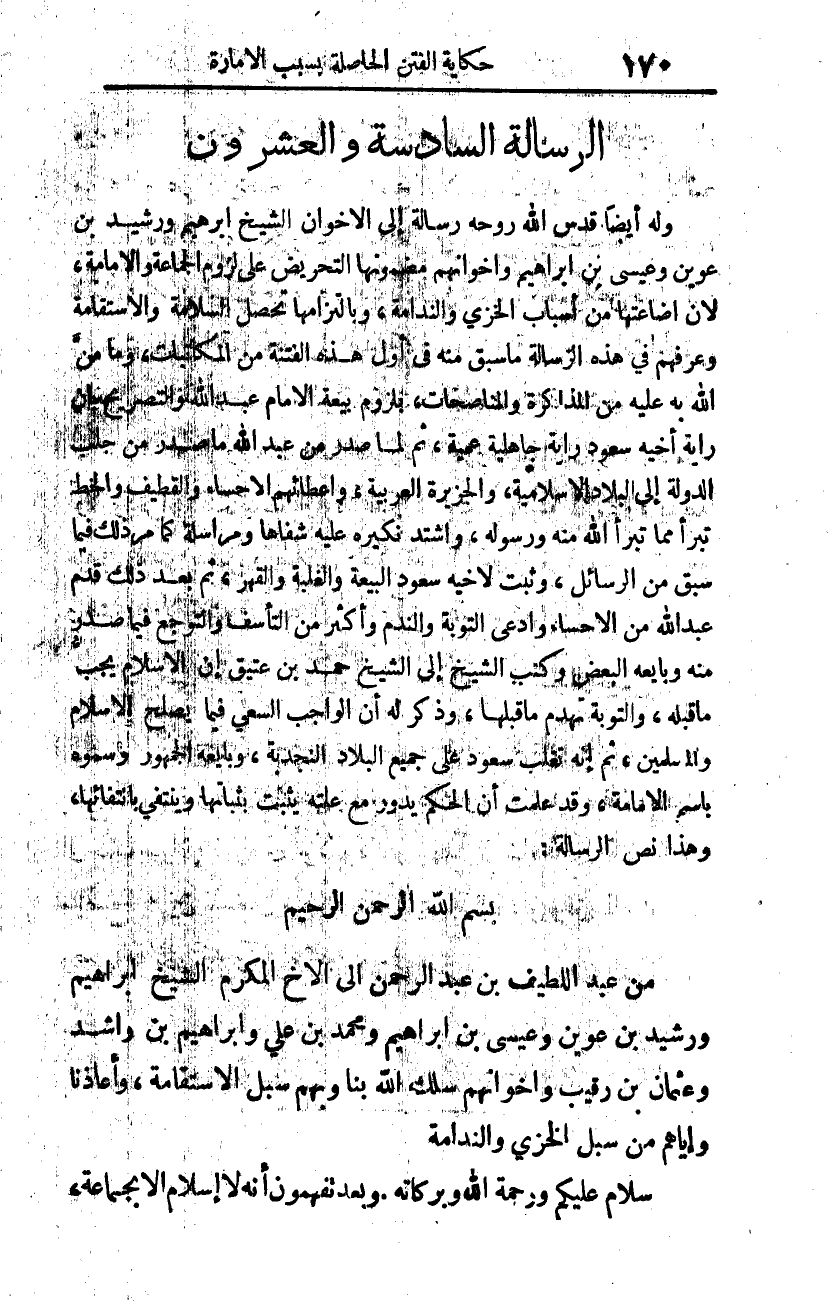 ١٧٠ حكاية الفتن الحاصلة بسبب الامارة
الرسالة السادسة والعشرون
وله أيضاً قدس الله روحه رسالة إلى الاخوان الشيخ ابرهيم ورشيد بن
عوين وعيسى بن ابراهيم واخوانهم مضمونها التحريض على لزوم الجماعة والامامة،
لان اضاعتها من أسباب الخزي والندامة، وبالتزامها تحصل السلامة والاستقامة
وعرفهم في هذه الرسالة ماسبق منه في أول هذه الفتنة من المكاتبات، وما منّ
الله به عليه من المذاكرة والمناصحات، بلزوم بيعة الامام عبد الله والتصريح بان
راية أخيه سعود راية جاهلية عمية، ثم لما صدر من عبد الله ماصدر من جلب
الدولة إلى البلاد الاسلامية، والجزيرة العربية، واعطائهم الاحساء والقطيف والخط
تبرأ مما تبرأ الله منه ورسوله، واشتد نكيره عليه شفاها ومراسلة كما مر ذلك فيما
سبق من الرسائل، وثبت لاخيه سعود البيعة والغلبة والقهر، ثم بعد ذلك قدم
عبدالله من الاحساء وادعى التوبة والندم وأكثر من التأسف والتوجع فيما صدر
منه وبايعه البعض وكتب الشيخ إلى الشيخ حمد بن عتيق إن الاسلام يجبّ
ماقبله، والتوبة تهدم ماقبلها، وذكر له أن الواجب السعي فيما يصلح الاسلام
والمسلمين، ثم إنه تغلب سعود على جميع البلاد النجدية، وبايعه الجمهور وسموه
باسم الامامة، وقد علمت أن الحكم يدور مع علته يثبت بثباتها وينتفي بانتفائها،
وهذا نص الرسالة:
بسم الله الرحمن الرحيم
من عبد اللطيف بن عبد الرحمن الى الاخ المكرم الشيخ ابراهيم
ورشيد بن عوين وعيسى بن ابراهيم ومحمد بن علي وابراهيم بن راشد
وعثمان بن رقيب واخوانهم سلك الله بنا وبهم سبل الاستقامة، وأعاذنا
وإياهم من سبل الخزي والندامة
سلام عليكم ورحمة الله وبركاته. وبعد تفهمون أنه لا إسلام الا بجماعة،